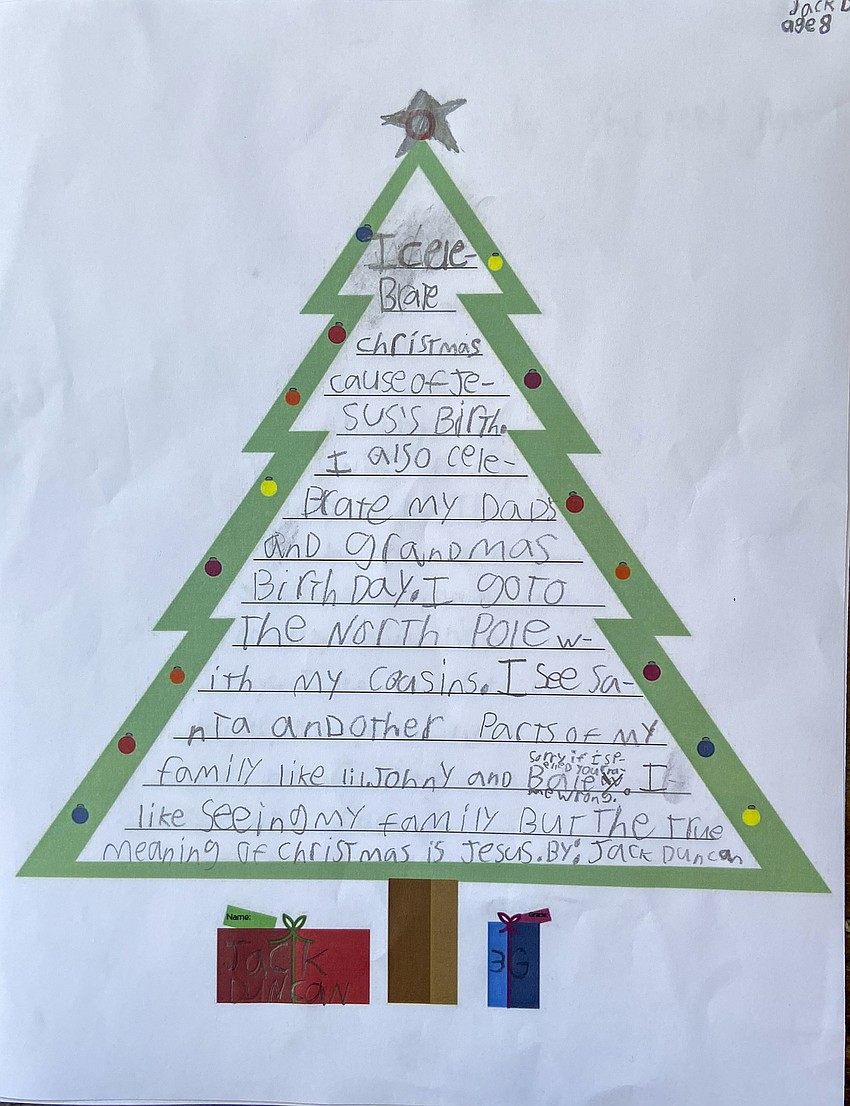 Jack D
age 8
I cele-
Brate
christmas
cause of Je-
sus's Birth.
I also cele-
Brate my Dads
and grandmas
Birth Day. I go to
The North Pole w-
ith my coasins. I see Sa-
nta and other Parts of my
family like lil Johny and Baie. I
sorry if I sp-
elled your na-
me wrong.
like seeing my family But The True
meaning of christmas is Jesus. By: Jack Duncan
Name:
Grade
Jack
Duncan
3G